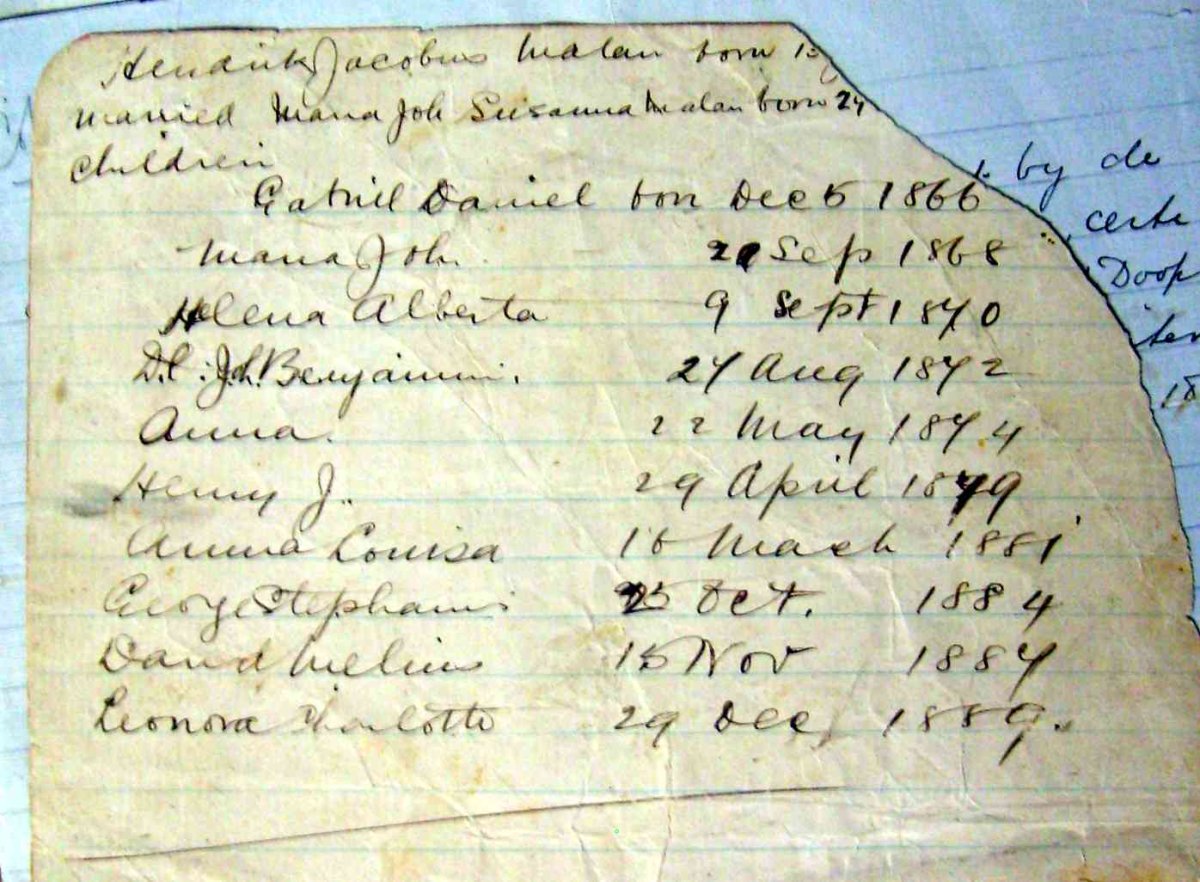 Hendrik Jacobus Malan born 13
married Maria Joh Susanna Malan born 24
children
Gabriel Daniel born Dec 5 1866
Maria Joh. Sep 1868
Helena Alberta 9 Sept 1870
Benjamin. 27 Aug 1872
Anna. 22 May 1874
Henry J. 29 April 1879
Anna Louisa 16 Mach 1881
George Stephanus 25 Oct. 1884
David Melius 15 Nov 1887
Leonora Charlotte 29 Dec 1889.
by de
certi
Doop
ter
18